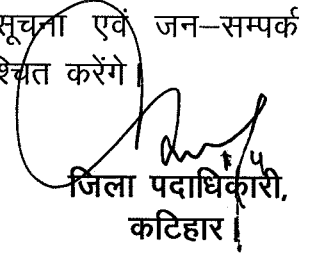 सूचना एवं जन–सम्पर्क
श्चित करेंगे।
जिला पदाधिकारी,
कटिहार।